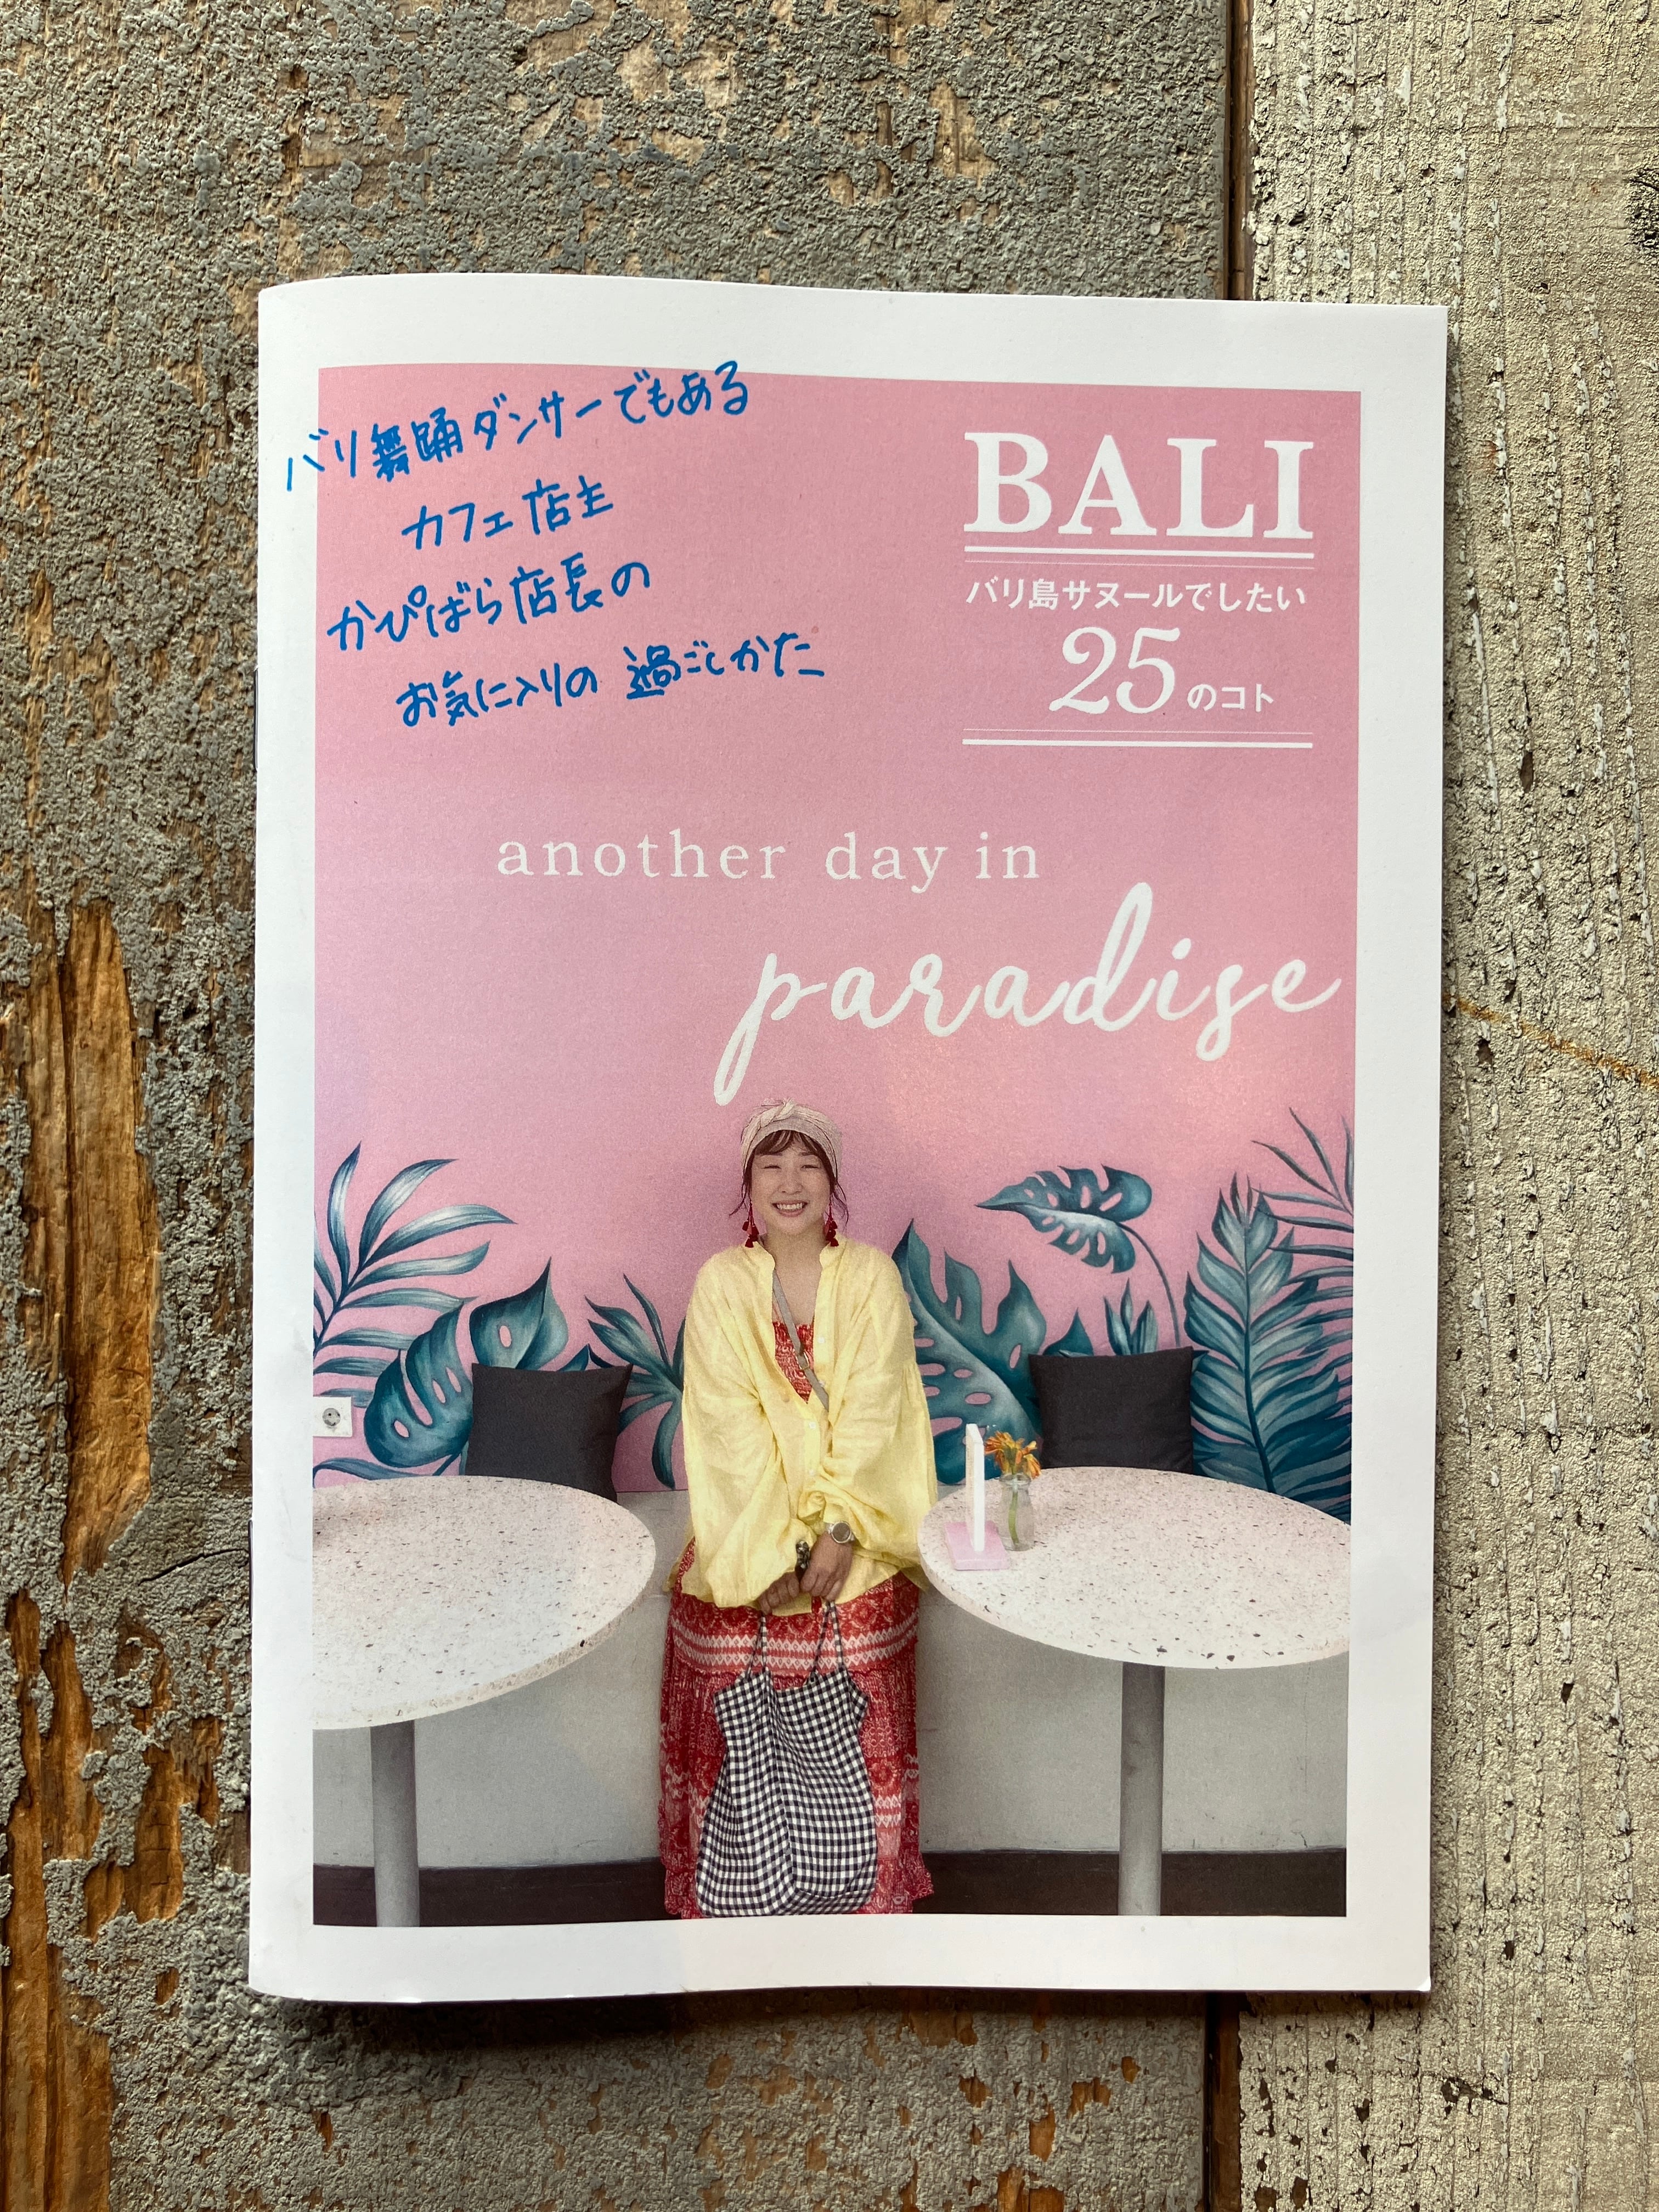 バリ舞踊ダンサーでもある
カフェ店主
かぴばら店長の
お気に入りの 過ごしかた
BALI
バリ島サヌールでしたい
25のコト
another day in
paradise